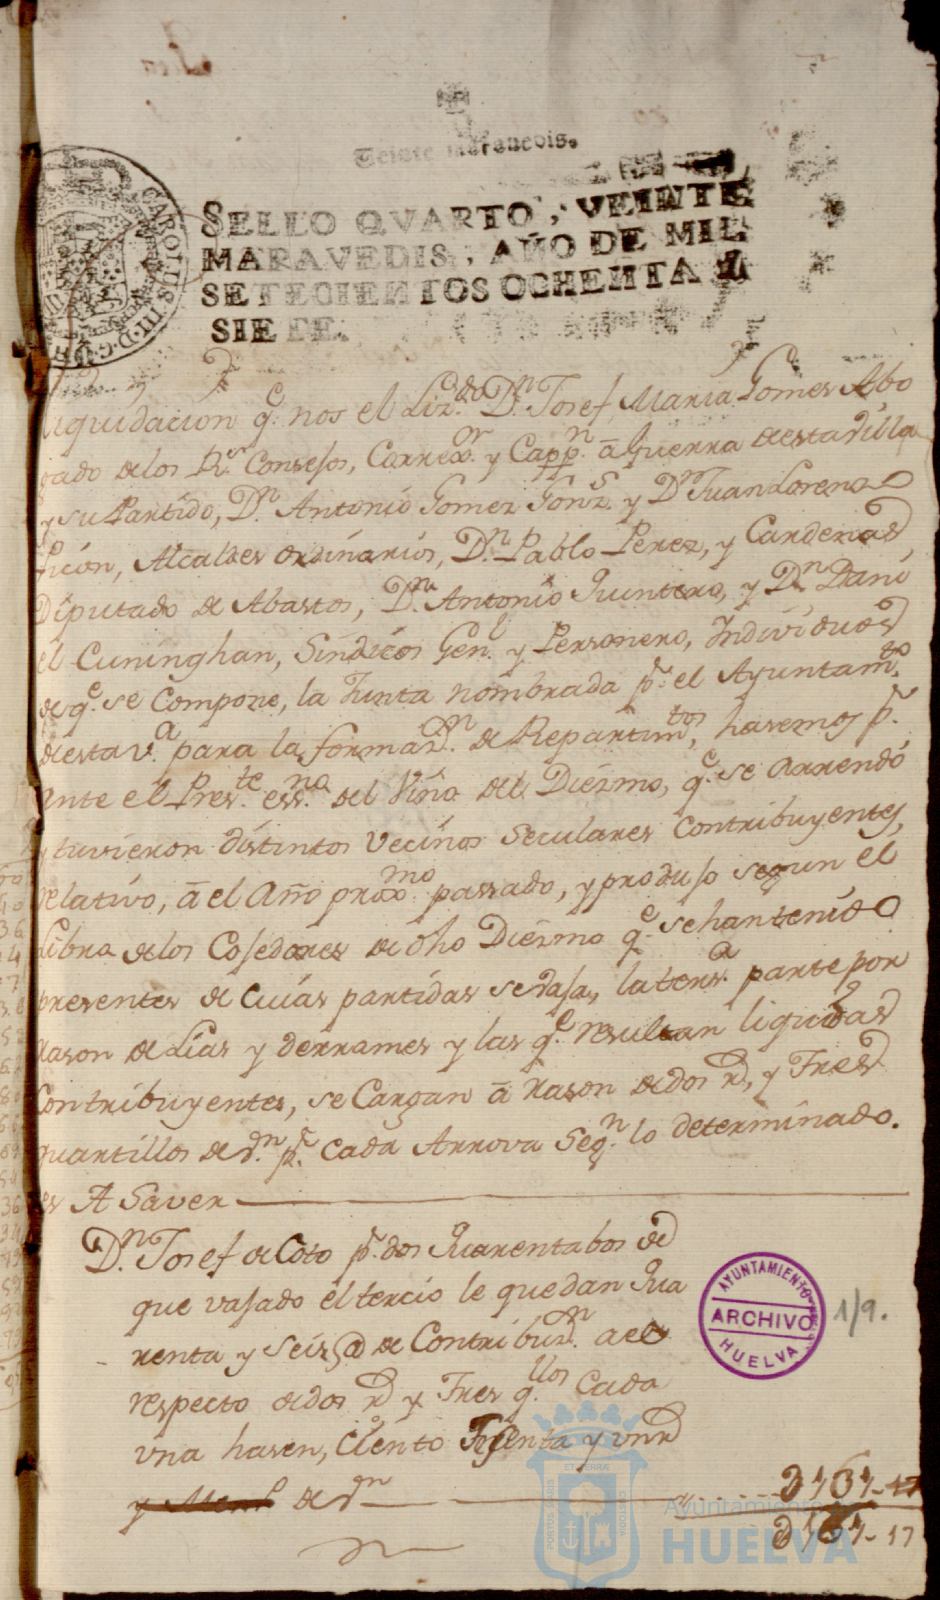 Veinte maravedis.
SELLO QVARTO, VEINTE
MARAVEDIS, AÑO DE MIL
SETECIENTOS OCHENTA Y
SIETE.
CAROLUS III D.G.
Liquidacion q.e nos el Liz.do D.n Josef Maria Gomes Abo
gado de los R.s Consejos, Correx.or y Capp.n â Guerra de esta Villa
y su Partido, D.n Antonio Gomez Gonz.s y D.n Juan Lorenzo
Picon, Alcaldes ordinarios, D.n Pablo Perez, y Cardenas,
Diputado de Abastos, D.n Antonio Quintero, y D.n Dani
el Cuninghan, Sindicos Gen.l y Personero, Individuos
de q.e se compone, la Junta nombrada p.r el Ayuntam.to
de esta v.a para la formaz.n de Repartim.tos, hasemos p.r
ante el Pres.te ess.no del Vino del Diezmo, q.e se arrendó
y tuvieron distintos vecinos seculares contribuyentes,
relativo, â el Año prox.mo passado, y produjo segun el
Libro de los Cojedores de dho Diezmo q.e se han tenido
presentes de cuias partidas se vaja, la ters.a parte por
rason de Lias y derrames y las q.e resultan liquidas
Contribuyentes, se Cargan â rason de dos r.s, y Tres
quartillos de v.n p.r cada Arrova seg.n lo determinado.
es A Saver
D.n Josef de Coto p.r dos Quarenta bos de
que vajado el tercio le quedan Qua
renta y seis @ de Contribuz.n a el
respecto de dos r.s y Tres q.llos cada
una hasen, ciento Treinta y un r.s
y de v.n
2131-17
2131-17
AYUNTAMIENTO
ARCHIVO
HUELVA
1/9.
PORTUS MARIS
ET TERRÆ
CUSTODIA
Ayuntamiento de
HUELVA